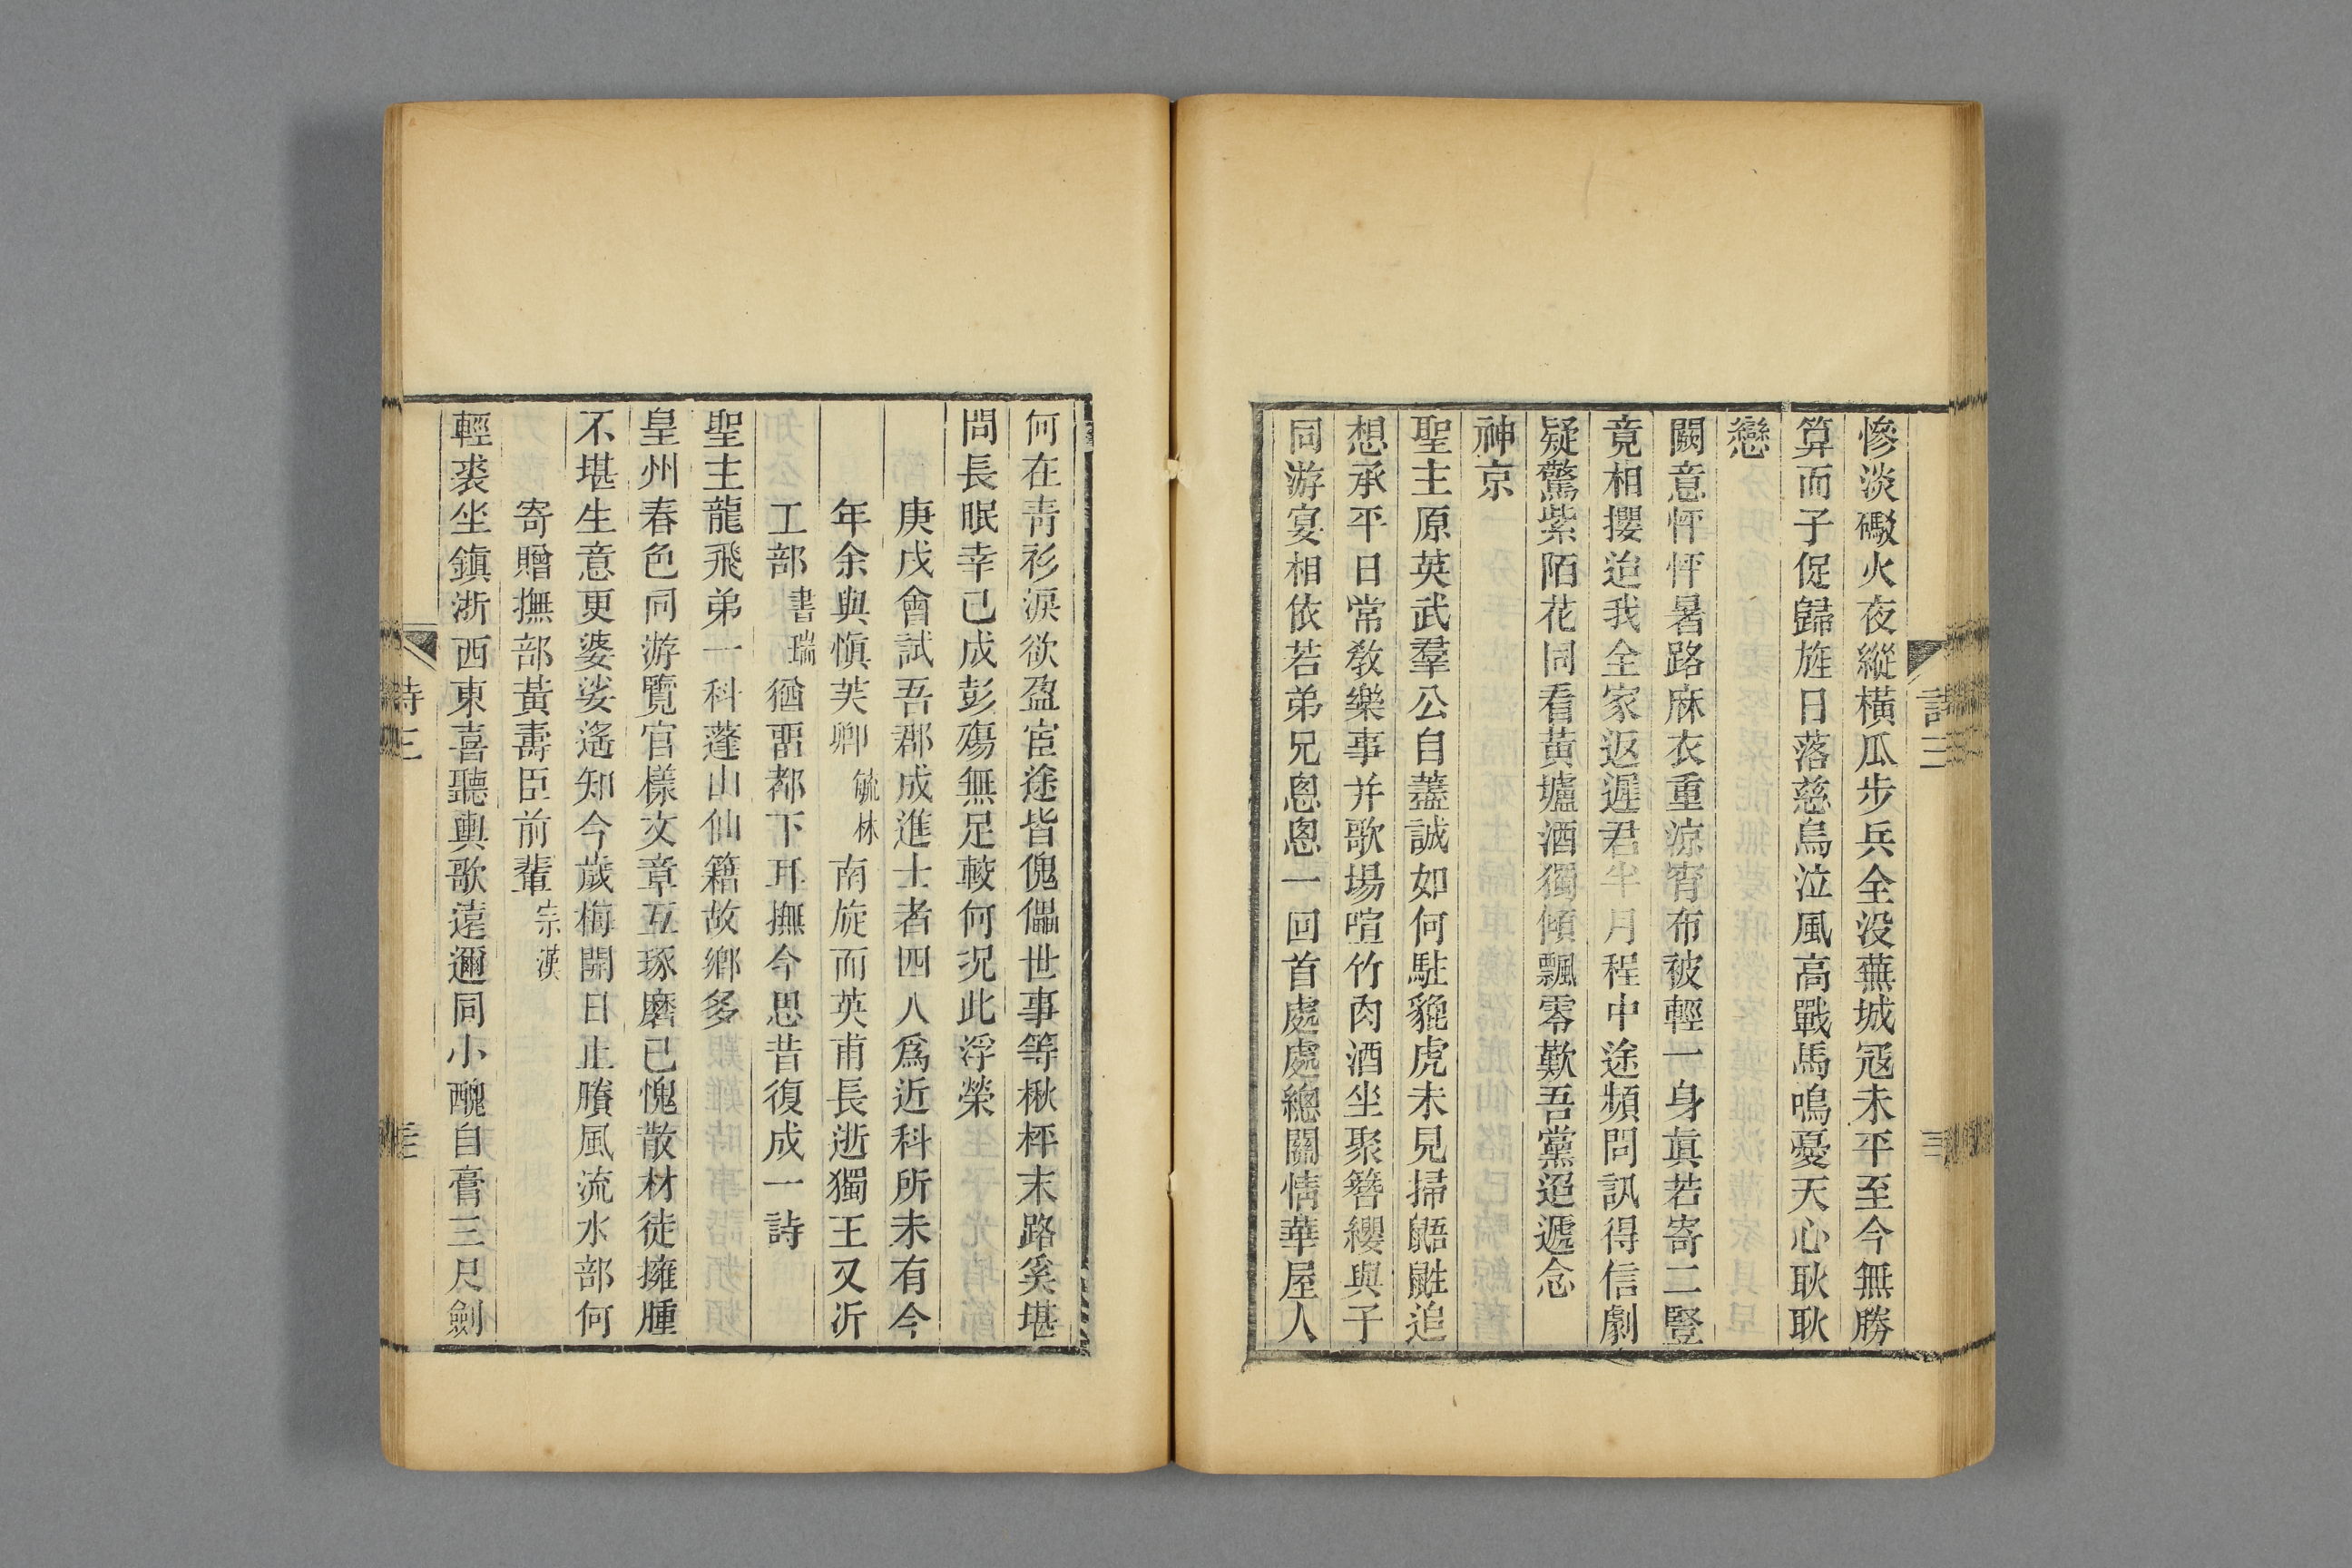 慘淡礮火夜縱橫瓜步兵全没蕪城冦未平至今無勝
算而子促歸旌日落慈烏泣風高戰馬鳴憂天心耿耿
戀
闕意怦怦暑路麻衣重涼宵布被輕一身眞若寄二豎
竟相攖迨我全家返遲君半月程中途頻問訊得信劇
疑驚紫陌花同看黃壚酒獨傾飄零歎吾黨迢遞念
神京
聖主原英武羣公自藎誠如何駐貔虎未見掃鼯鼪追
想承平日常敎樂事并歌場喧竹肉酒坐聚簪纓與子
同游宴相依若弟兄悤悤一回首處處總關情華屋人
詩三
何在靑衫淚欲盈宦途皆傀儡世事等楸枰末路奚堪
問長眠幸已成彭殤無足較何況此浮榮
庚戌會試吾郡成進士者四人爲近科所未有今
年余與愼芙卿毓林南旋而英甫長逝獨王又沂
工部書瑞猶畱都下耳撫今思昔復成一詩
聖主龍飛弟一科蓬山仙籍故鄕多
皇州春色同游覽官樣文章互琢磨已愧散材徒擁腫
不堪生意更婆娑遙知今歲梅開日止賸風流水部何
寄贈撫部黃壽臣前輩宗漢
輕裘坐鎭浙西東喜聽輿歌遠邇同小醜自膏三尺劍
詩三